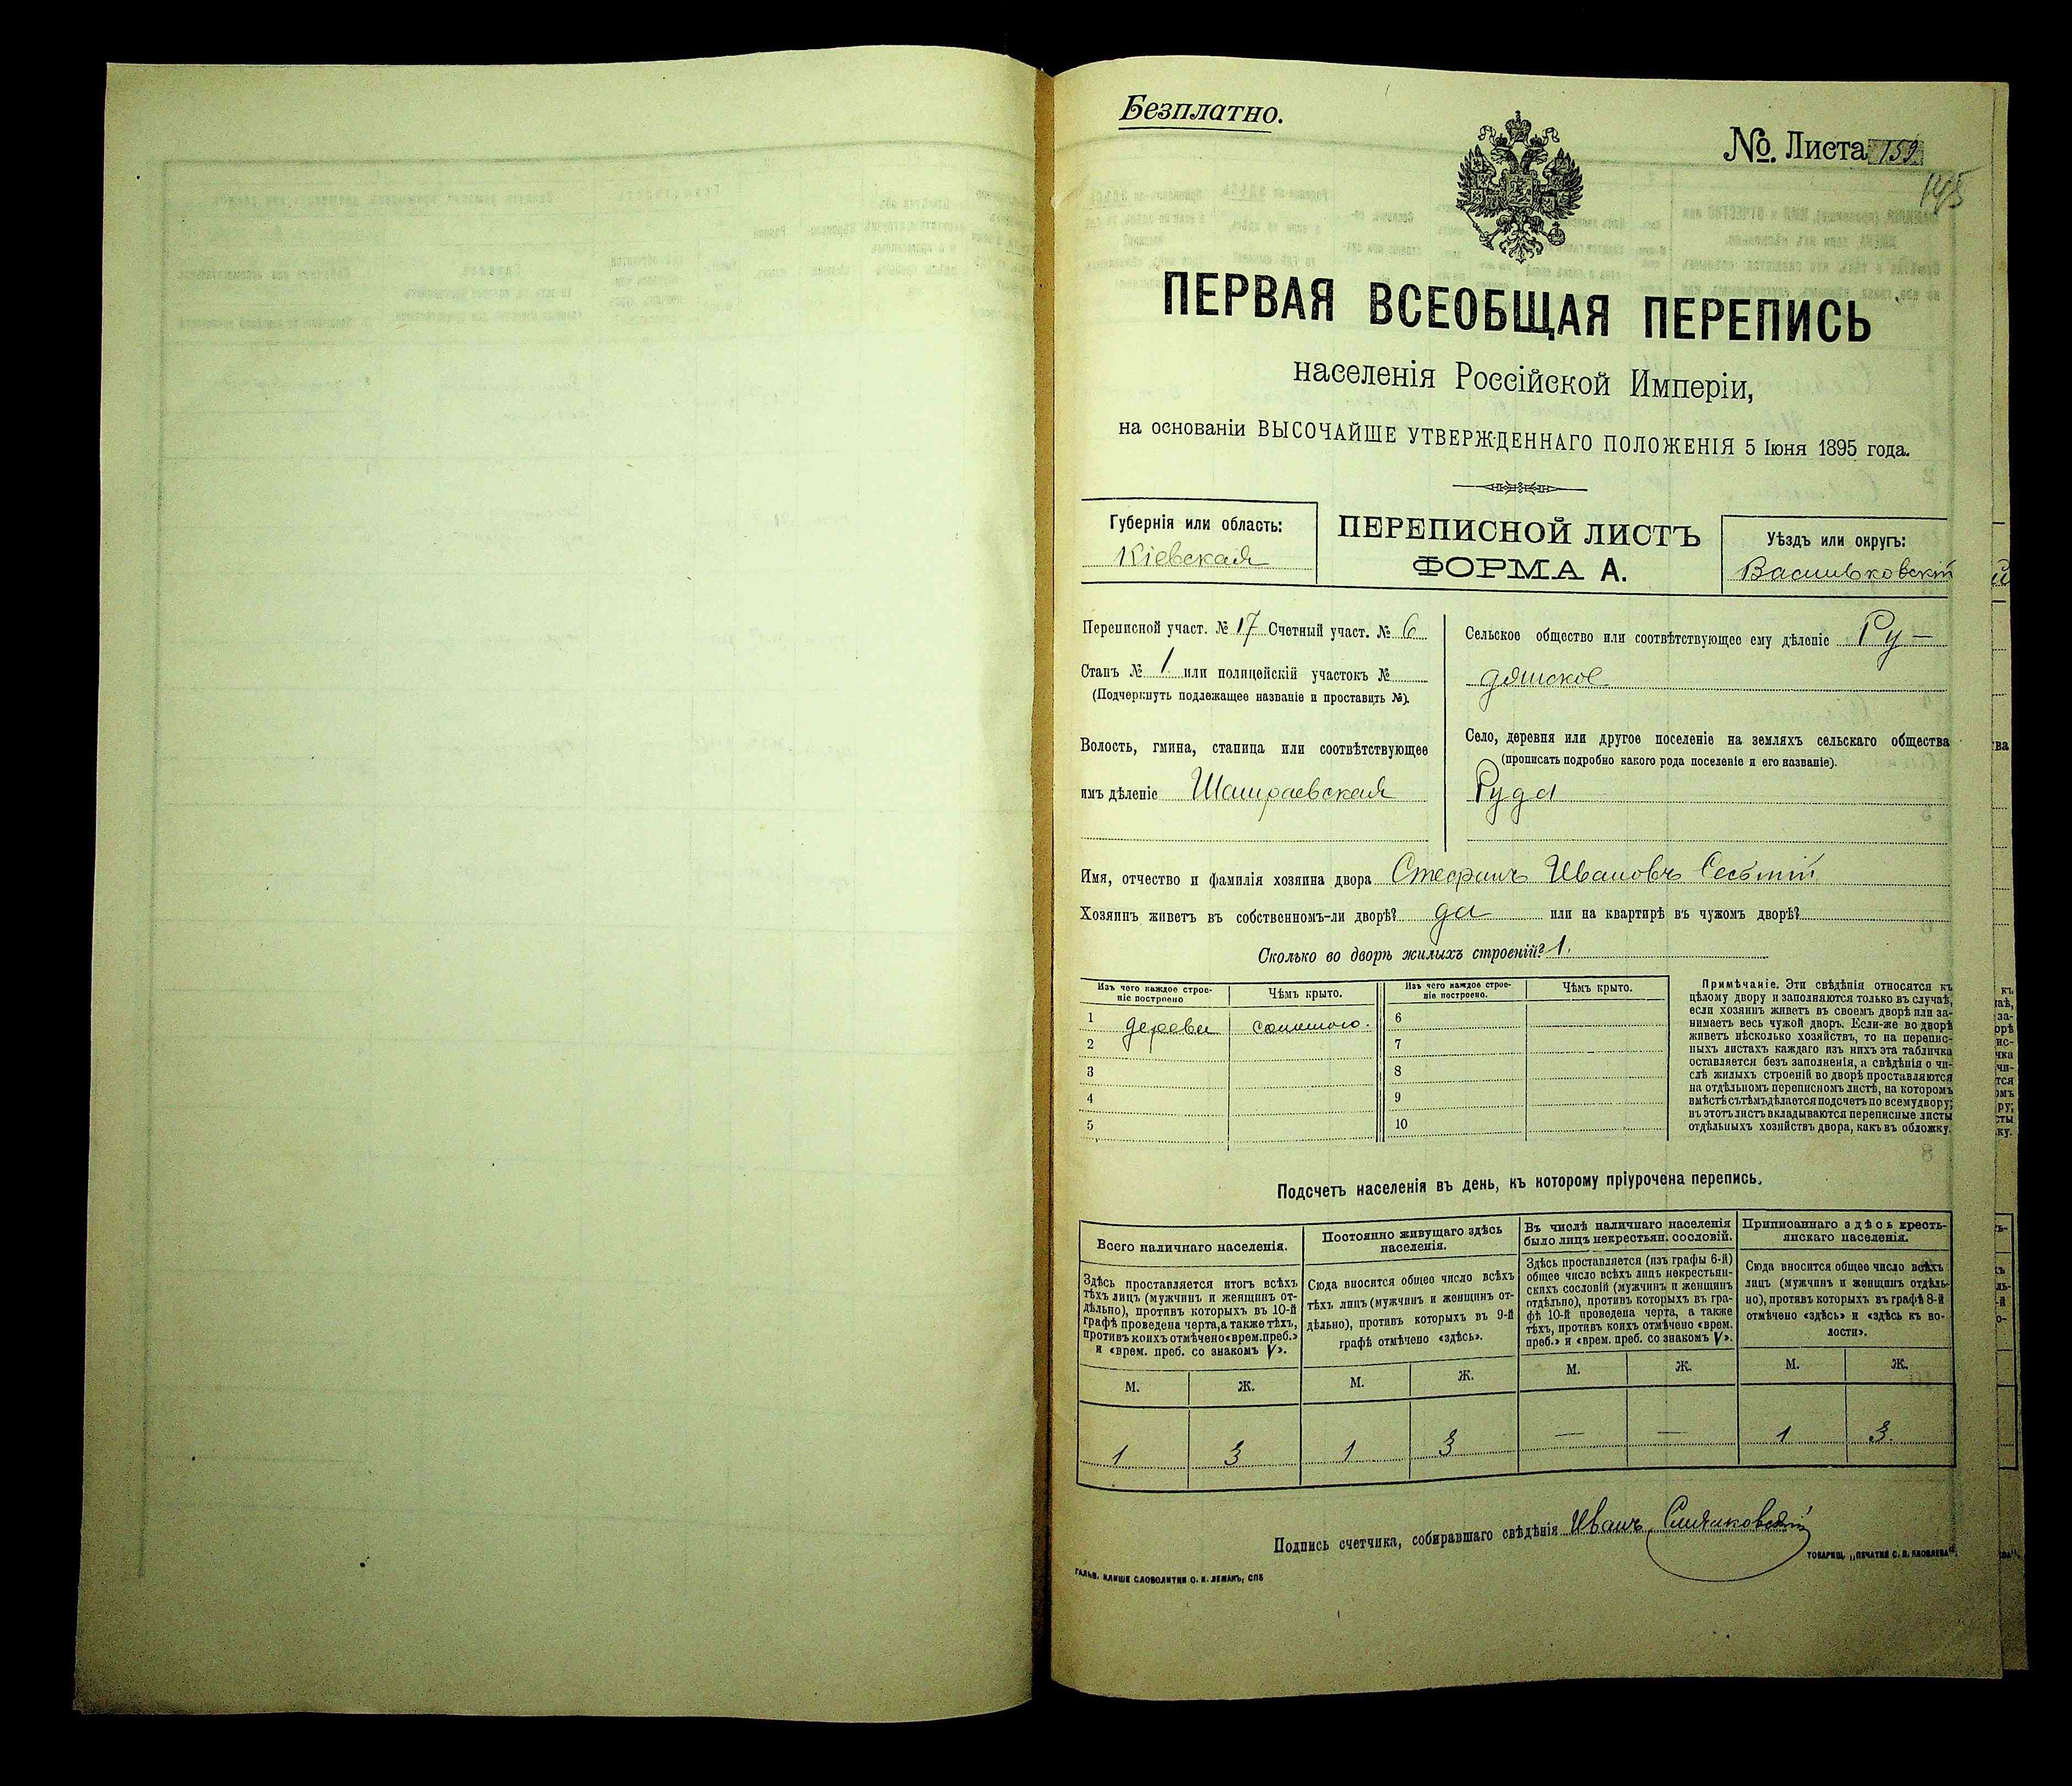 Безплатно.
№. Листа 159
ПЕРВАЯ ВСЕОБЩАЯ ПЕРЕПИСЬ
населенія Россійской Имперіи,
на основаніи ВЫСОЧАЙШЕ УТВЕРЖДЕННАГО ПОЛОЖЕНІЯ 5 Іюня 1895 года.
Губернія или область:
Кіевская
ПЕРЕПИСНОЙ ЛИСТЪ
ФОРМА А.
Уѣздъ или округъ:
Васильковскій
Переписной участ. № 17 Счетный участ. № 6
Станъ № 1 или полицейскій участокъ №
(Подчеркнуть подлежащее названіе и проставить №).
Волость, гмина, станица или соотвѣтствующее
имъ дѣленіе Шамраевская
Сельское общество или соотвѣтствующее ему дѣленіе Ру-
дянское
Село, деревня или другое поселеніе на земляхъ сельскаго общества
(прописать подробно какого рода поселеніе и его названіе).
Руда
Имя, отчество и фамилія хозяина двора Стефанъ Ивановъ
Хозяинъ живетъ въ собственномъ-ли дворѣ? да или на квартирѣ въ чужомъ дворѣ?
Сколько во дворѣ жилыхъ строеній? 1.
Изъ чего каждое строе-
ніе построено
Чѣмъ крыто.
Изъ чего каждое строе-
ніе построено.
Чѣмъ крыто.
1 дерева соломою. 6
2 7
3 8
4 9
5 10
Примѣчаніе. Эти свѣдѣнія относятся къ
цѣлому двору и заполняются только въ случаѣ,
если хозяинъ живетъ въ своемъ дворѣ или за-
нимаетъ весь чужой дворъ. Если-же во дворѣ
живетъ нѣсколько хозяйствъ, то на перепис-
ныхъ листахъ каждаго изъ нихъ эта табличка
оставляется безъ заполненія, а свѣдѣнія о чи-
слѣ жилыхъ строеній во дворѣ проставляются
на отдѣльномъ переписномъ листѣ, на которомъ
вмѣстѣ съ тѣмъ дѣлается подсчетъ по всему двору;
въ этотъ листъ вкладываются переписные листы
отдѣльныхъ хозяйствъ двора, какъ въ обложку.
Подсчетъ населенія въ день, къ которому пріурочена перепись.
Всего наличнаго населенія.
Здѣсь проставляется итогъ всѣхъ
тѣхъ лицъ (мужчинъ и женщинъ от-
дѣльно), противъ которыхъ въ 10-й
графѣ проведена черта, а также тѣхъ,
противъ коихъ отмѣчено «врем. преб.»
и «врем. преб. со знакомъ V».
Постоянно живущаго здѣсь
населенія.
Сюда вносится общее число всѣхъ
тѣхъ лицъ (мужчинъ и женщинъ от-
дѣльно), противъ которыхъ въ 9-й
графѣ отмѣчено «здѣсь».
Въ числѣ наличнаго населенія
было лицъ некрестьян. сословій.
Здѣсь проставляется (изъ графы 6-й)
общее число всѣхъ лицъ некрестьян-
скихъ сословій (мужчинъ и женщинъ
отдѣльно), противъ которыхъ въ гра-
фѣ 10-й проведена черта, а также
тѣхъ, противъ коихъ отмѣчено «врем.
преб.» и «врем. преб. со знакомъ V».
Приписаннаго здѣсь кресть-
янскаго населенія.
Сюда вносится общее число всѣхъ
лицъ (мужчинъ и женщинъ отдѣль-
но), противъ которыхъ въ графѣ 8-й
отмѣчено «здѣсь» и «здѣсь къ во-
лости».
М. Ж. М. Ж. М. Ж. М. Ж.
1 3 1 3 — — 1 3
Подпись счетчика, собиравшаго свѣдѣнія Иванъ
ГАЛЬВ. КЛИШЕ СЛОВОЛИТНИ О. И. ЛЕМАНЪ, СПБ
ТОВАРИЩ. „ПЕЧАТНЯ С. П. ЯКОВЛЕВА".